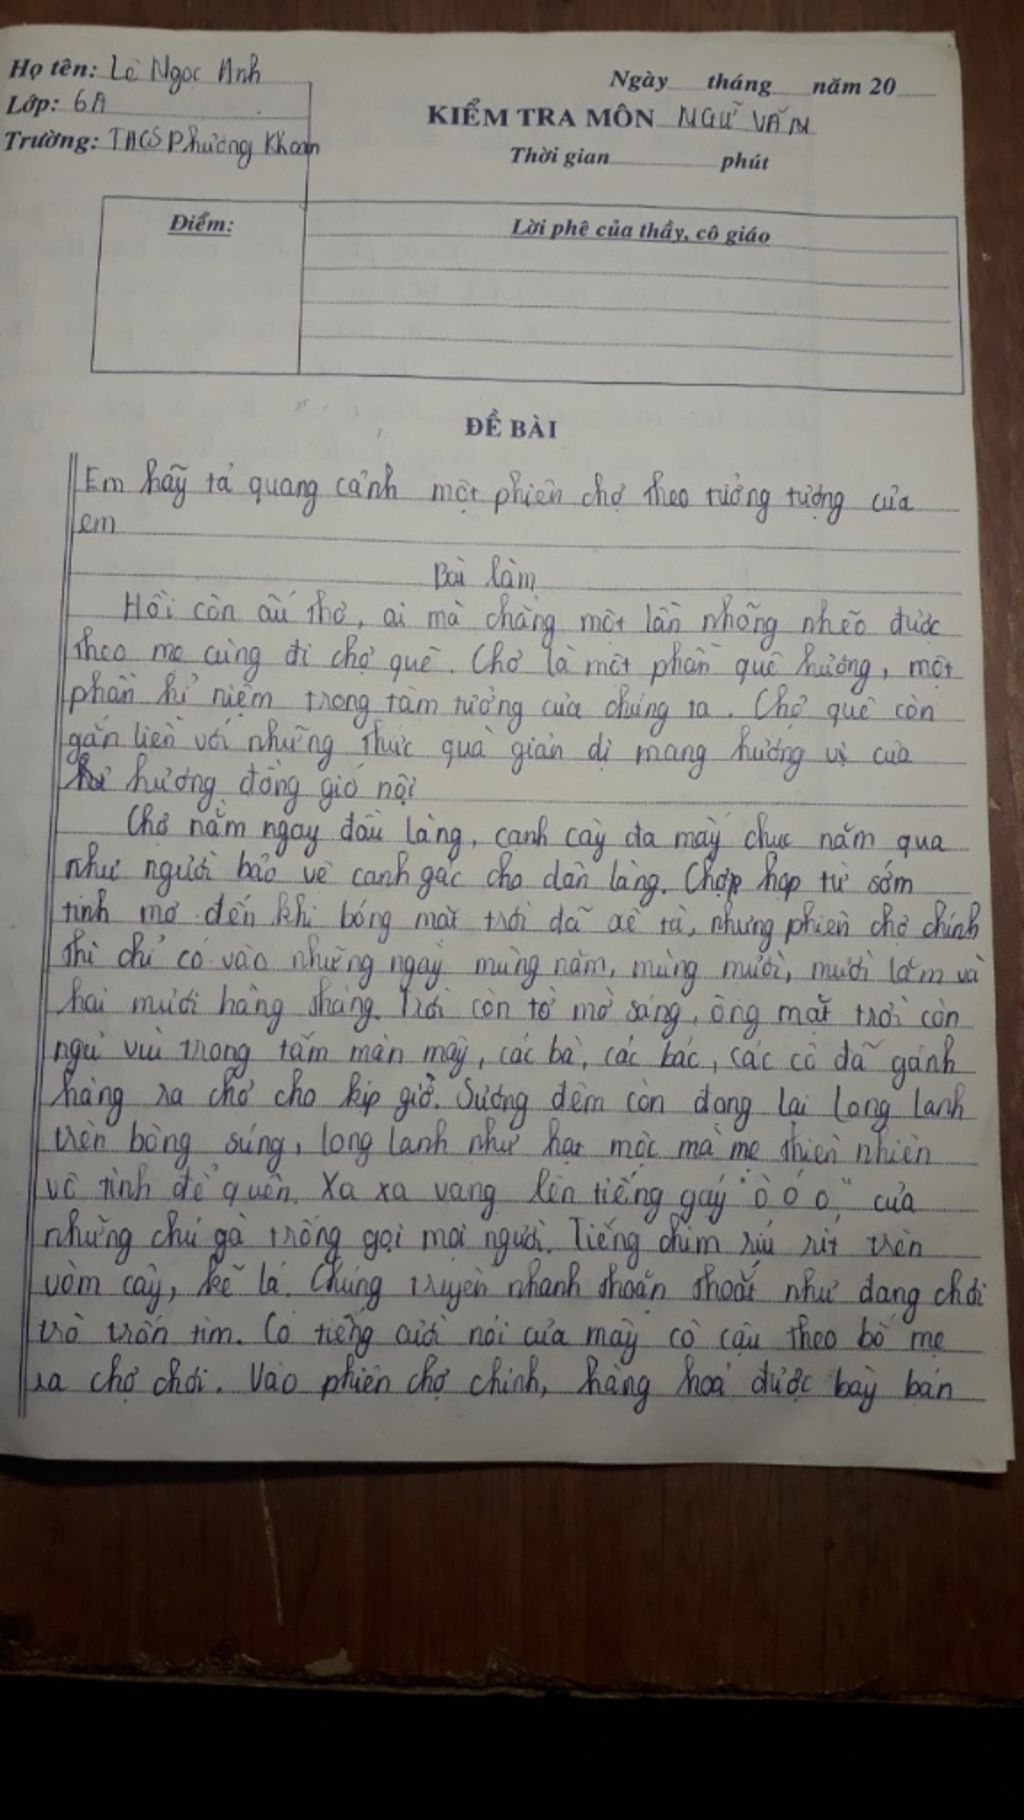 Họ tên: Lê Ngọc Anh
Lớp: 6A
Trường: THCS Phương Khoan
Ngày tháng năm 20
KIỂM TRA MÔN NGỮ VĂN
Thời gian phút
Điểm:
Lời phê của thầy, cô giáo
ĐỀ BÀI
Em hãy tả quang cảnh một phiên chợ theo tưởng tượng của
em
Bài làm
Hồi còn ấu thơ, ai mà chẳng một lần nhõng nhẽo được
theo mẹ cùng đi chợ quê. Chợ là một phần quê hương, một
phần kỉ niệm trong tâm tưởng của chúng ta. Chợ quê còn
gắn liền với những thức quà giản dị mang hương vị của
hương đồng gió nội
Chợ nằm ngay đầu làng, cạnh cây đa mấy chục năm qua
như người bảo vệ canh gác cho dân làng. Chợ họp từ sớm
tinh mơ đến khi bóng mặt trời đã xế tà, nhưng phiên chợ chính
thì chỉ có vào những ngày mùng năm, mùng mười, mười lăm và
hai mươi hàng tháng. Trời còn tờ mờ sáng, ông mặt trời còn
ngủ vùi trong tấm màn mây, các bà, các bác, các cô đã gánh
hàng ra chợ cho kịp giờ. Sương đêm còn đọng lại long lanh
trên bông súng, long lanh như hạt mộc mà mẹ thiên nhiên
vô tình để quên. Xa xa vang lên tiếng gáy "ò ó o" của
những chú gà trống gọi mọi người. Tiếng chim ríu rít trên
vòm cây, kẽ lá. Chúng truyền nhanh thoăn thoắt như đang chơi
trò trốn tìm. Có tiếng cười nói của mấy cô cậu theo bố mẹ
ra chợ chơi. Vào phiên chợ chính, hàng hoá được bày bán